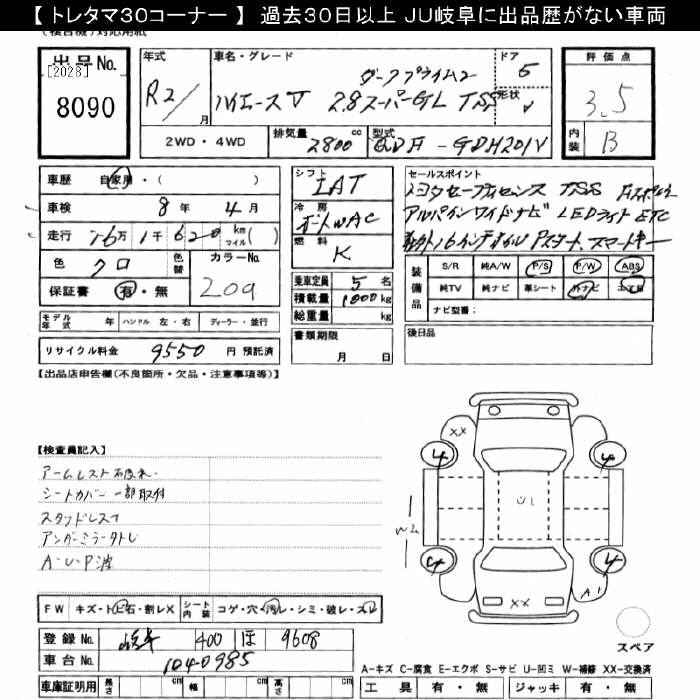 【 トレタマ30コーナー 】 過去30日以上 JU岐阜に出品歴がない車両
出品No.
[2028]
8090
年式
R2/
月
車名・グレード
ダークプライム2
ハイエースV 2.8スーパーGL TSS
ドア
5
形状
評価点
3.5
内装
B
2WD・4WD
排気量
2800
cc
型式
QDF-GDH201V
車歴
自家用・( )
車検
8年 4月
走行
万 千 km マイル( )
色
クロ
色替
カラーNo.
209
保証書
有・無
シフト
IAT
冷房
オートWAC
燃料
K
乗車定員
5名
積載量
1000kg
総重量
kg
セールスポイント
トヨタセーフティセンス TSS
アルパインワイドナビ LEDライト ETC
スマートキー
装備品
S/R 純A/W P/S P/W ABS
純TV 純ナビ 革シート 外ナビ
ナビ型番:
モデル年式
年
ハンドル 左・右
ディーラー・並行
リサイクル料金
9550
円 預託済
書類期限
月 日
後日品
【出品店申告欄(不良箇所・欠品・注意事項等)】
【検査員記入】
シートカバー一部取付
スタッドレス
アンダーミラー
A・U・P波
XX
4
4
W2
U1
4
4
A1
XX
スペア
FW キズ・トビ石・割レX
シート内装
コゲ・穴・汚レ・シミ・破レ・スレ
登録No.
岐阜 400 ほ 9608
車台No.
1040985
車庫証明用 長さ cm 幅 cm 高さ cm
A-キズ C-腐食 E-エクボ S-サビ U-凹ミ W-補修 XX-交換済
工具 有・無 ジャッキ 有・無